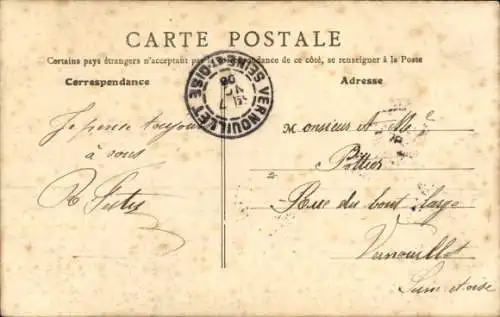 CARTE POSTALE
Certains pays étrangers n'acceptant pas la correspondance de ce côté, se renseigner à la Poste
Correspondance
Adresse
VERNOUILLET
SEINE-ET-OISE
08
Je pense toujours
à vous
Monsieur A
Pottier
Rue du bout large
Vernouillet
Seine et oise